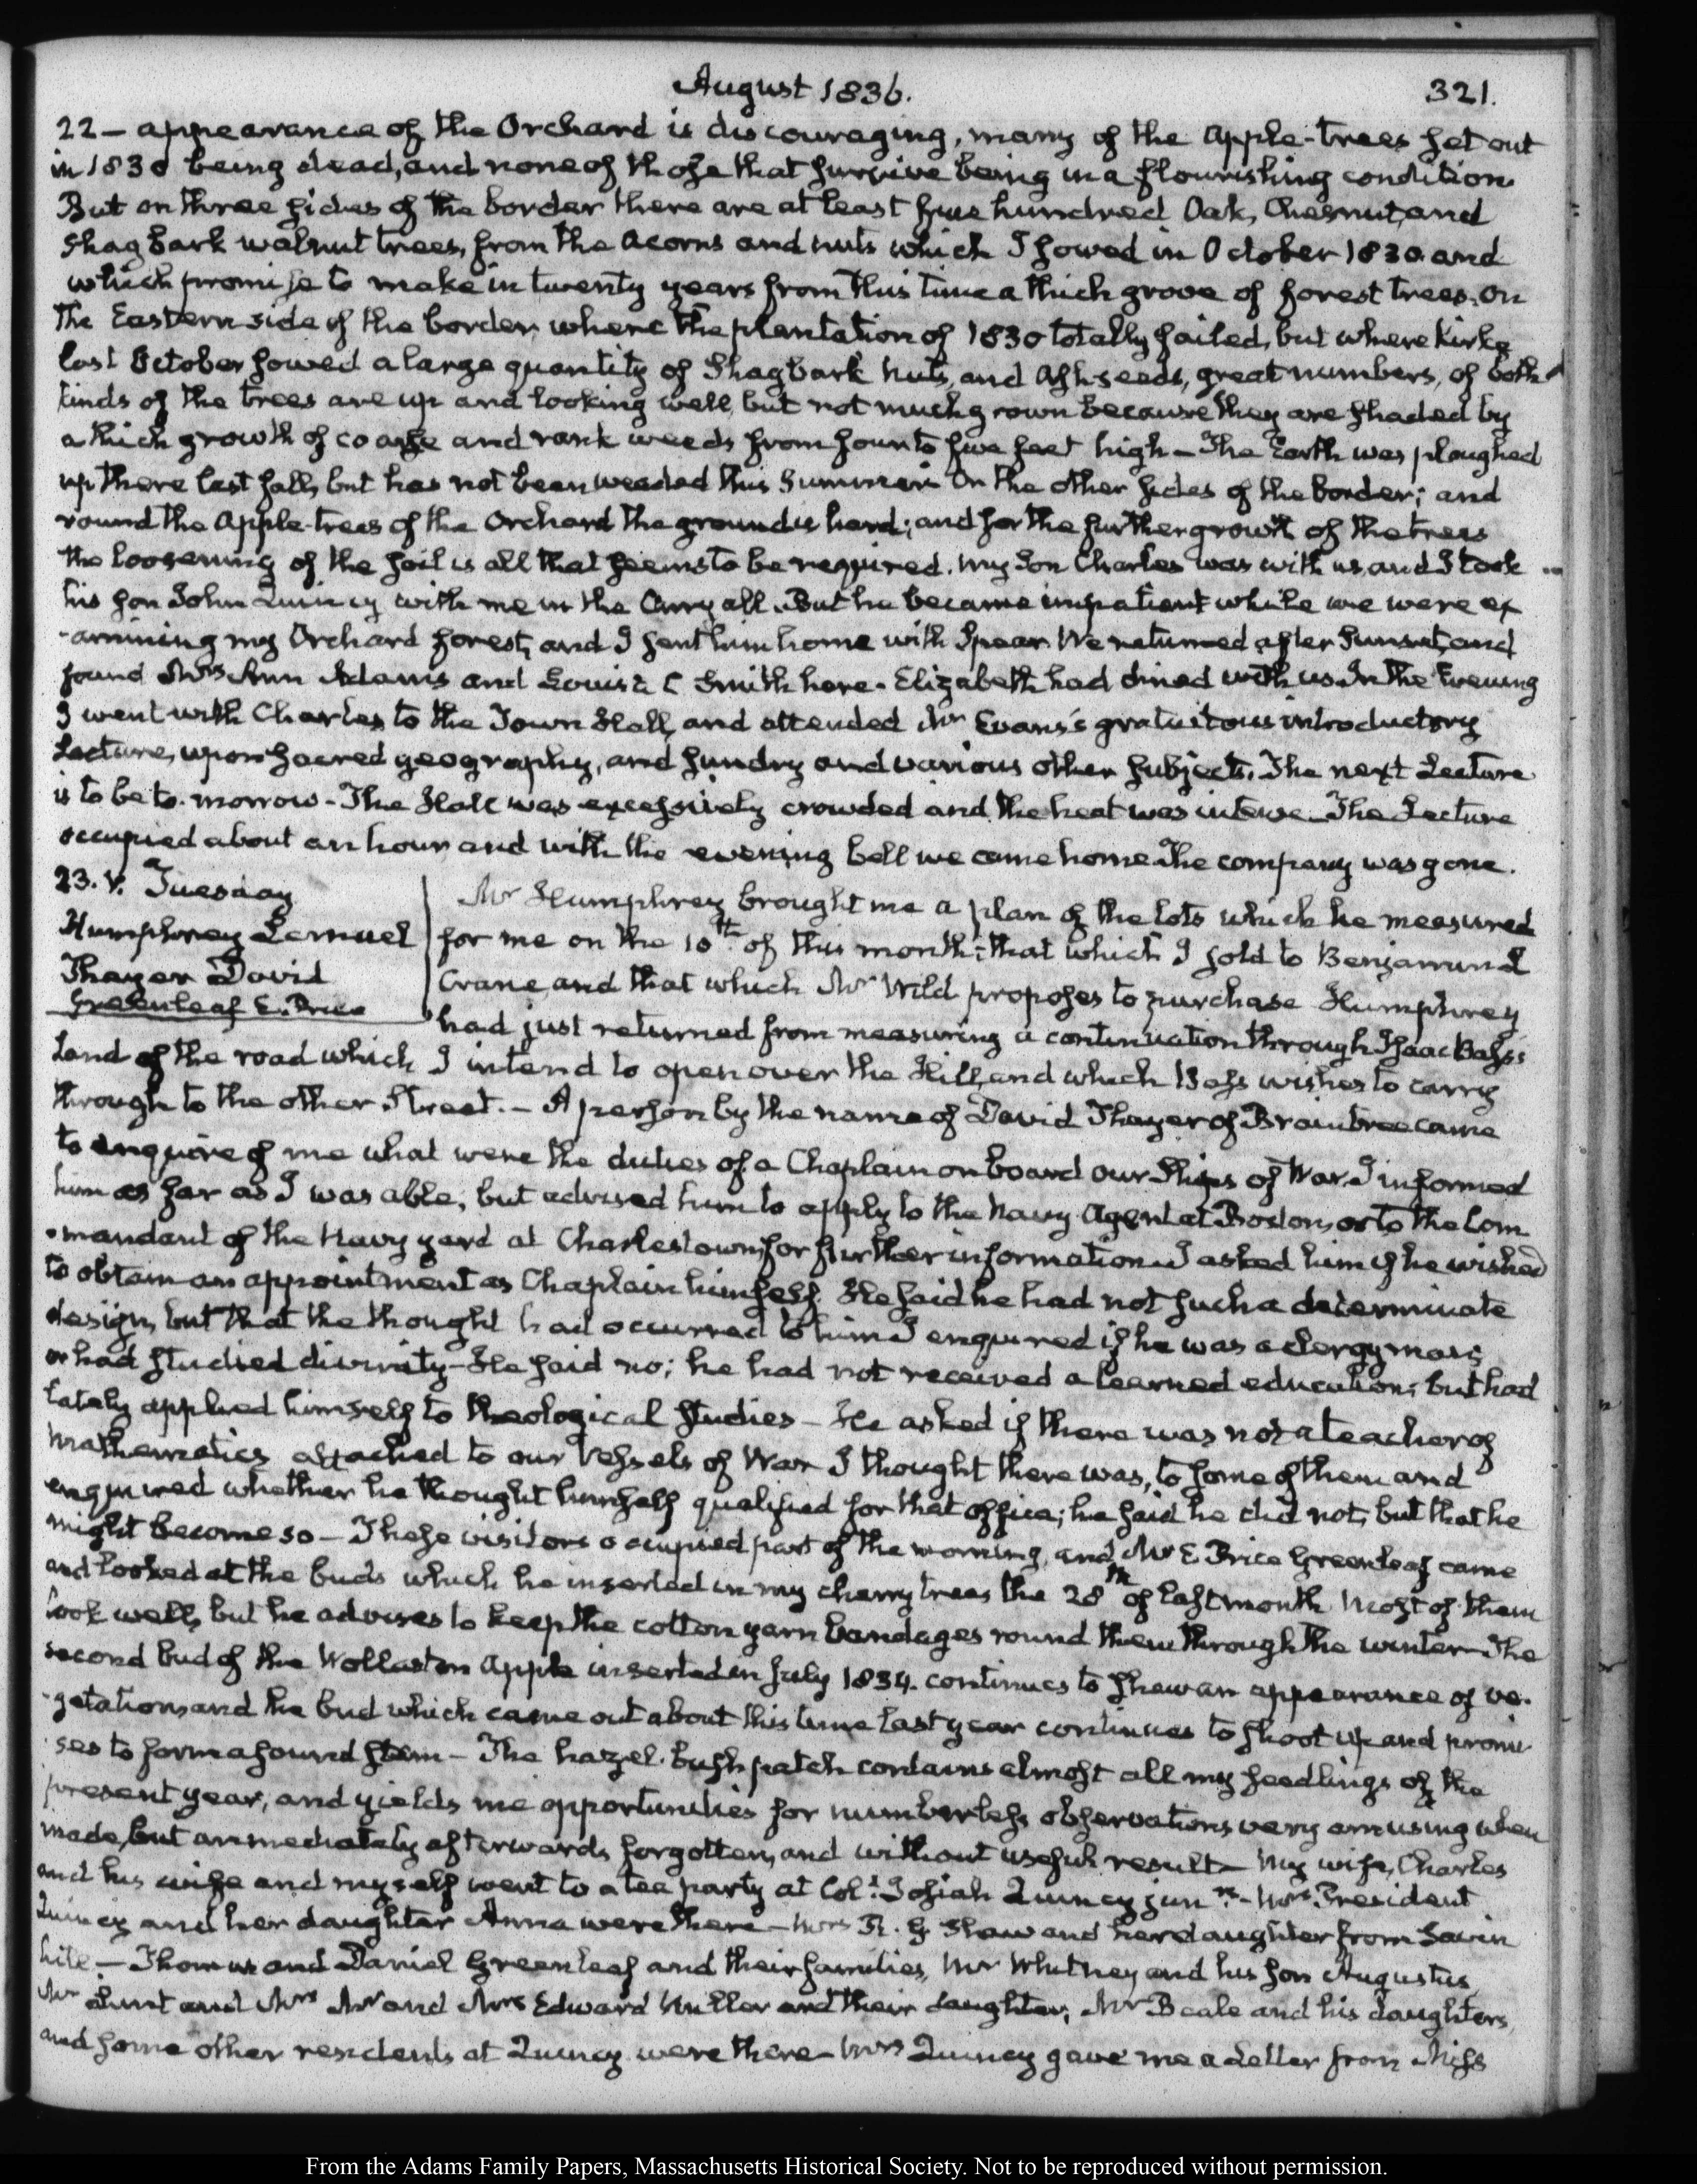 August 1836.
321.
22 — appearance of the Orchard is discouraging, many of the Apple-trees set out
in 1830 being dead, and none of those that survive being in a flourishing condition.
But on three sides of the border there are at least five hundred Oak, Chesnut, and
Shagbark walnut trees, from the acorns and nuts which I sowed in October 1830 and
which promise to make in twenty years from this time a thick grove of forest trees. On
the Eastern side of the border, where the plantation of 1830 totally failed, but where Kirke
last October sowed a large quantity of Shagbark nuts, and Ash-seeds, great numbers, of both
kinds of the trees are up and looking well, but not much grown because they are shaded by
a thick growth of coarse and rank weeds from four to five feet high — The Earth was ploughed
up there last fall, but has not been weeded this Summer. On the other sides of the border; and
round the Apple-trees of the Orchard the ground is hard; and for the further growth of the trees
the loosening of the soil is all that seems to be required. My Son Charles was with us, and I took
his son John Quincy with me in the Carryall. But he became impatient while we were ex
-amining my Orchard forest, and I sent him home with Spear. We returned after Sunset, and
found Mrs Ann Adams and Louisa C Smith here. Elizabeth had dined with us. In the Evening
I went with Charles to the Town Hall, and attended Mr Evans's gratuitous introductory
Lecture, upon sacred geography, and sundry and various other subjects. The next Lecture
is to be to-morrow — The Hall was excessively crowded and the heat was intense — The Lecture
occupied about an hour and with the evening bell we came home. The company was gone.
23. V. Tuesday
Humphrey Lemuel
Thayer David
Greenleaf E. Price
Mr Humphrey brought me a plan of the lots which he measured
for me on the 10th of this month: that which I sold to Benjamin L
Crane, and that which Mr Wild proposes to purchase. Humphrey
had just returned from measuring a continuation through Isaac Bass's
Land of the road which I intend to open over the Hill, and which Bass wishes to carry
through to the other Street. — A person by the name of David Thayer of Braintree came
to enquire of me what were the duties of a Chaplain on board our Ships of War. I informed
him as far as I was able; but advised him to apply to the Navy Agent at Boston, or to the Com
-mandant of the Navy yard at Charlestown, for further information. I asked him if he wished
to obtain an appointment as Chaplain himself. He said he had not such a determinate
design, but that the thought had occurred to him. I enquired if he was a clergyman,
or had studied divinity — He said no; he had not received a learned education; but had
lately applied himself to theological studies — He asked if there was not a teacher of
Mathematics attached to our Vessels of War. I thought there was, to some of them and
enquired whether he thought himself qualified for that office; he said he did not, but that he
might become so — These visitors occupied part of the morning, and Mr E. Price Greenleaf came
and looked at the buds which he inserted in my cherry trees the 28th of last month. Most of them
look well, but he advises to keep the cotton yarn bandages round them through the winter — The
second bud of the Wollaston Apple inserted in July 1834. continues to shew an appearance of ve-
-getation, and the bud which came out about this time last year continues to shoot up and promi-
ses to form a sound stem — The hazel-bush patch contains almost all my seedlings of the
present year, and yields me opportunities for numberless observations very amusing when
made, but immediately afterwards forgotten, and without useful result — My wife, Charles
and his wife and myself went to a tea party at Col. Josiah Quincy junr. — Mrs President
Quincy and her daughter Anna were there — Mrs R. G Shaw and her daughter from Savin
hill. — Thomas and Daniel Greenleaf and their families, Mr Whitney and his son Augustus,
Mr Lunt and Mrs Mr and Mrs Edward Miller and their daughter, Mr Beale and his daughters,
and some other residents at Quincy were there — Mrs Quincy gave me a Letter from Miss
From the Adams Family Papers, Massachusetts Historical Society. Not to be reproduced without permission.